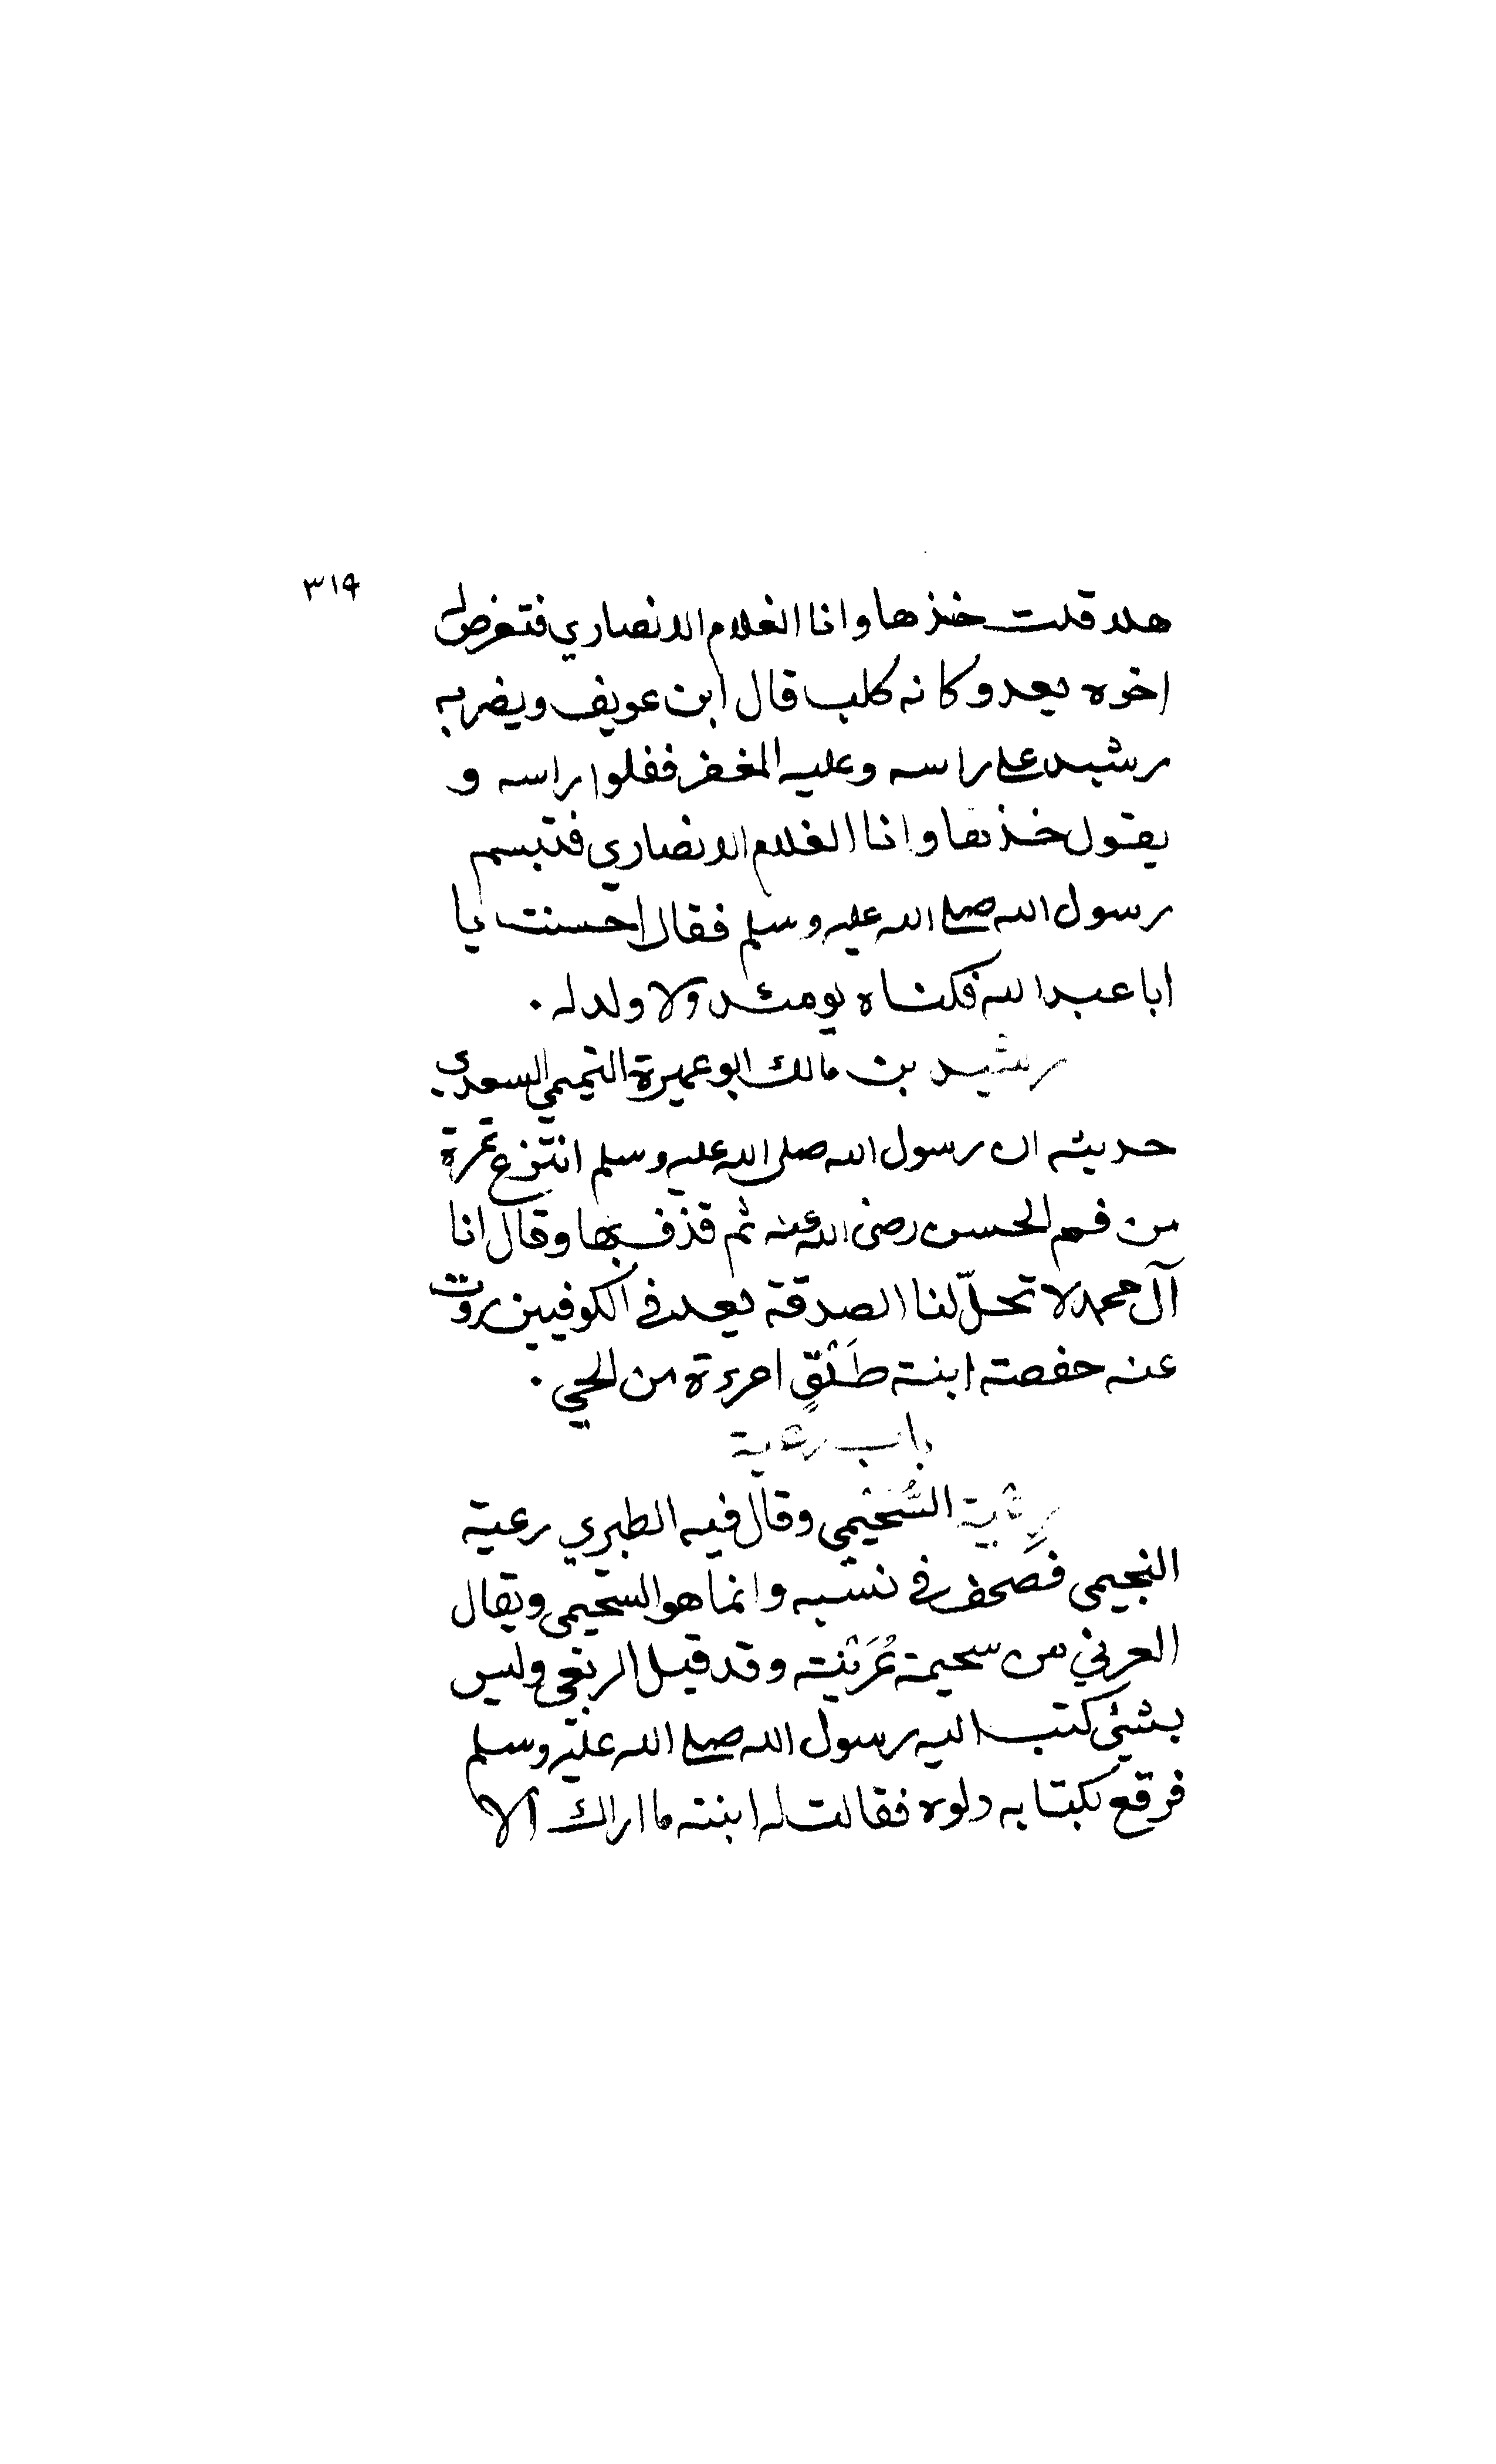 ٣١٩
هلا قلت خذها وانا الغلام الانصاري فتعرض له
اخوه يعدو كانه كلب قال ابن عويف ويضربه
رشيد على راسه وعليه المغفر ففلوا راسه و
يقول خذها وانا الغلام الانصاري فتبسم
رسول الله صلى الله عليه وسلم فقال احسنت يا
ابا عبد الله فكناه يومئد ولا ولد له ٠
رشيد بن مالك ابو عميرة التميمي السعدي
حديثه ان رسول الله صلى الله عليه وسلم انتزع تمرة
من فم الحسن رضى الله عنه ثم قذف بها وقال انا
آل محمد لا تحلّ لنا الصدقة يعد فى الكوفيين روت
عنه حفصته ابنة طَلْقٍ امرءة من الحي ٠
باب رعية
رعية السُّحَيْمي وقال فيه الطبري رعية
النجيمى فصحف فى نسبه وانما هو السحيمى ويقال
العرني من سحيمة عُرَيْنة وقد قيل الربعي وليس
بشيئ كتب اليه رسول الله صلى الله عليه وسلم
فرقع بكتابه دلوه فقالت له ابنته ما اراك الا